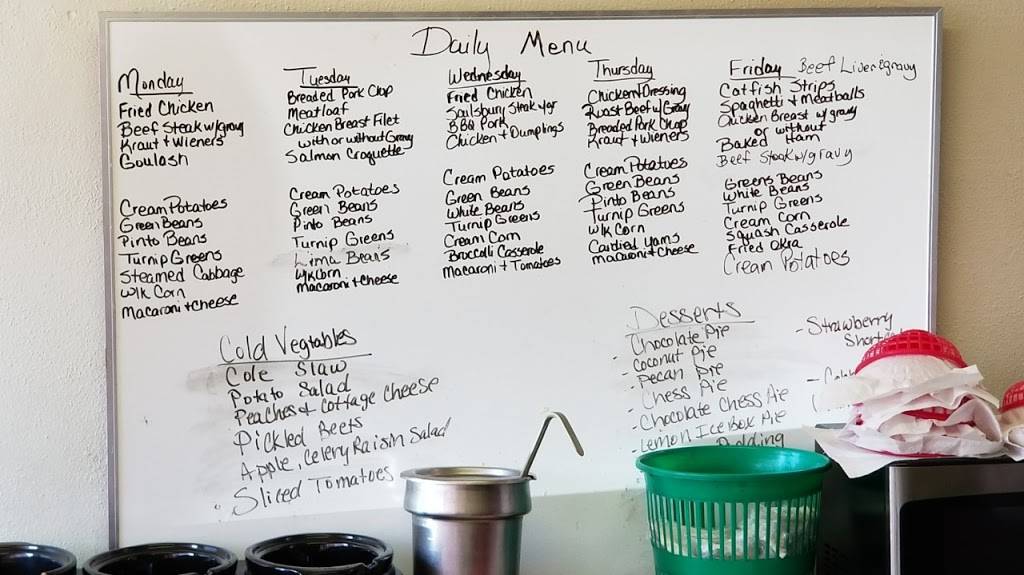 Daily Menu
Monday
Fried Chicken
Beef Steak w/gravy
Kraut + Wieners
Goulosh
Cream Potatoes
Green Beans
Pinto Beans
Turnip Greens
Steamed Cabbage
W/K Corn
Macaroni + Cheese
Tuesday
Breaded Pork Chop
Meatloaf
Chicken Breast Filet
with or without Gravy
Salmon Croquette
Cream Potatoes
Green Beans
Pinto Beans
Turnip Greens
Lima Beans
W/K Corn
Macaroni + Cheese
Wednesday
Fried Chicken
Sailsbury Steak w/gr
BBQ Pork
Chicken + Dumplings
Cream Potatoes
Green Beans
White Beans
Turnip Greens
Cream Corn
Broccalli Casserole
Macaroni + Tomatoes
Thursday
Chicken + Dressing
Roast Beef w/ Gravy
Breaded Pork Chop
Kraut + Wieners
Cream Potatoes
Green Beans
Pinto Beans
Turnip Greens
W/K Corn
Candied Yams
Macaroni + Cheese
Friday Beef Liver & gravy
Catfish Strips
Spaghetti + Meatballs
Chicken Breast w/ gravy
or without
Baked Ham
Beef Steak w/gravy
Greens Beans
White Beans
Turnip Greens
Cream Corn
Squash Casserole
Fried Okra
Cream Potatoes
Cold Vegtables
Cole Slaw
Potato Salad
Peaches & Cottage Cheese
Pickled Beets
Apple, Celery Raisin Salad
Sliced Tomatoes
Desserts
- Chocolate Pie
- Coconut Pie
- Pecan Pie
- Chess Pie
- Chocolate Chess Pie
- Lemon Ice Box Pie
Pudding
- Strawberry